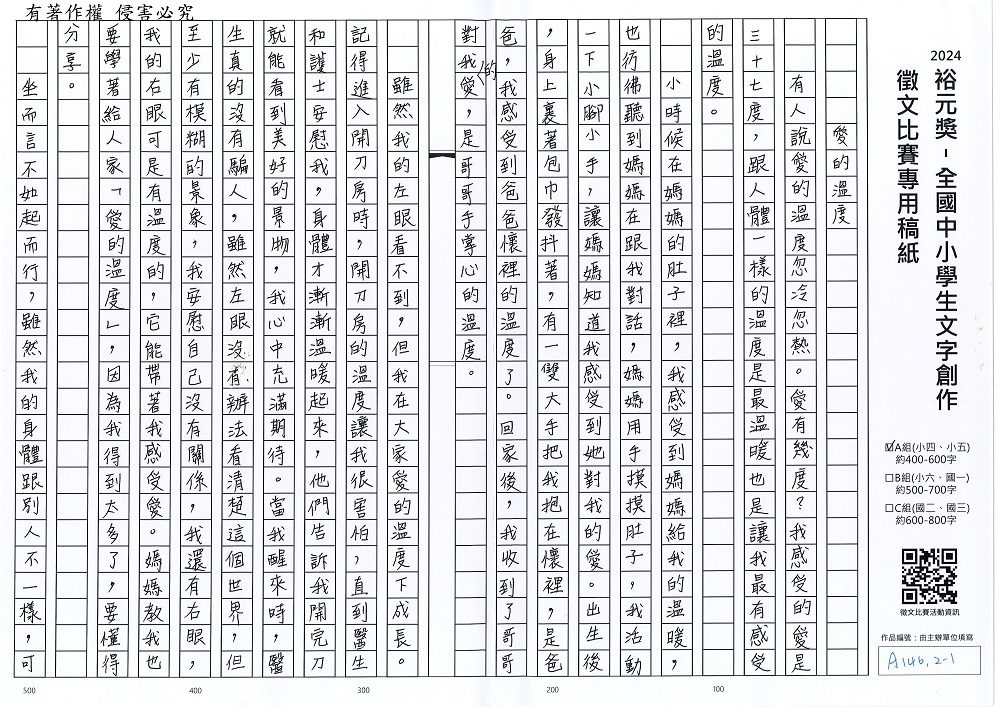 有著作權 侵害必究
2024
裕元獎-全國中小學生文字創作
徵文比賽專用稿紙
☑A組(小四、小五)
約400-600字
☐B組(小六、國一)
約500-700字
☐C組(國二、國三)
約600-800字
徵文比賽活動資訊
作品編號:由主辦單位填寫
A146,2-1
愛的溫度
有人說愛的溫度忽冷忽熱。愛有幾度?我感受的愛是
三十七度,跟人體一樣的溫度是最溫暖也是讓我最有感受
的溫度。
小時候在媽媽的肚子裡,我感受到媽媽給我的溫暖,
也彷彿聽到媽媽在跟我對話,媽媽用手摸摸肚子,我活動
一下小腳小手,讓媽媽知道我感受到她對我的愛。出生後
,身上裹著包巾發抖著,有一雙大手把我抱在懷裡,是爸
爸,我感受到爸爸懷裡的溫度了。回家後,我收到了哥哥
對我的愛,是哥哥手掌心的溫度。
雖然我的左眼看不到,但我在大家愛的溫度下成長。
記得進入開刀房時,開刀房的溫度讓我很害怕,直到醫生
和護士安慰我,身體才漸漸溫暖起來,他們告訴我開完刀
就能看到美好的景物,我心中充滿期待。當我醒來時,醫
生真的沒有騙人,雖然左眼沒有辦法看清楚這個世界,但
至少有模糊的景象,我安慰自己沒有關係,我還有右眼,
我的右眼可是有溫度的,它能帶著我感受愛。媽媽教我也
要學著給人家「愛的溫度」,因為我得到太多了,要懂得
分享。
坐而言不如起而行,雖然我的身體跟別人不一樣,可
100
200
300
400
500